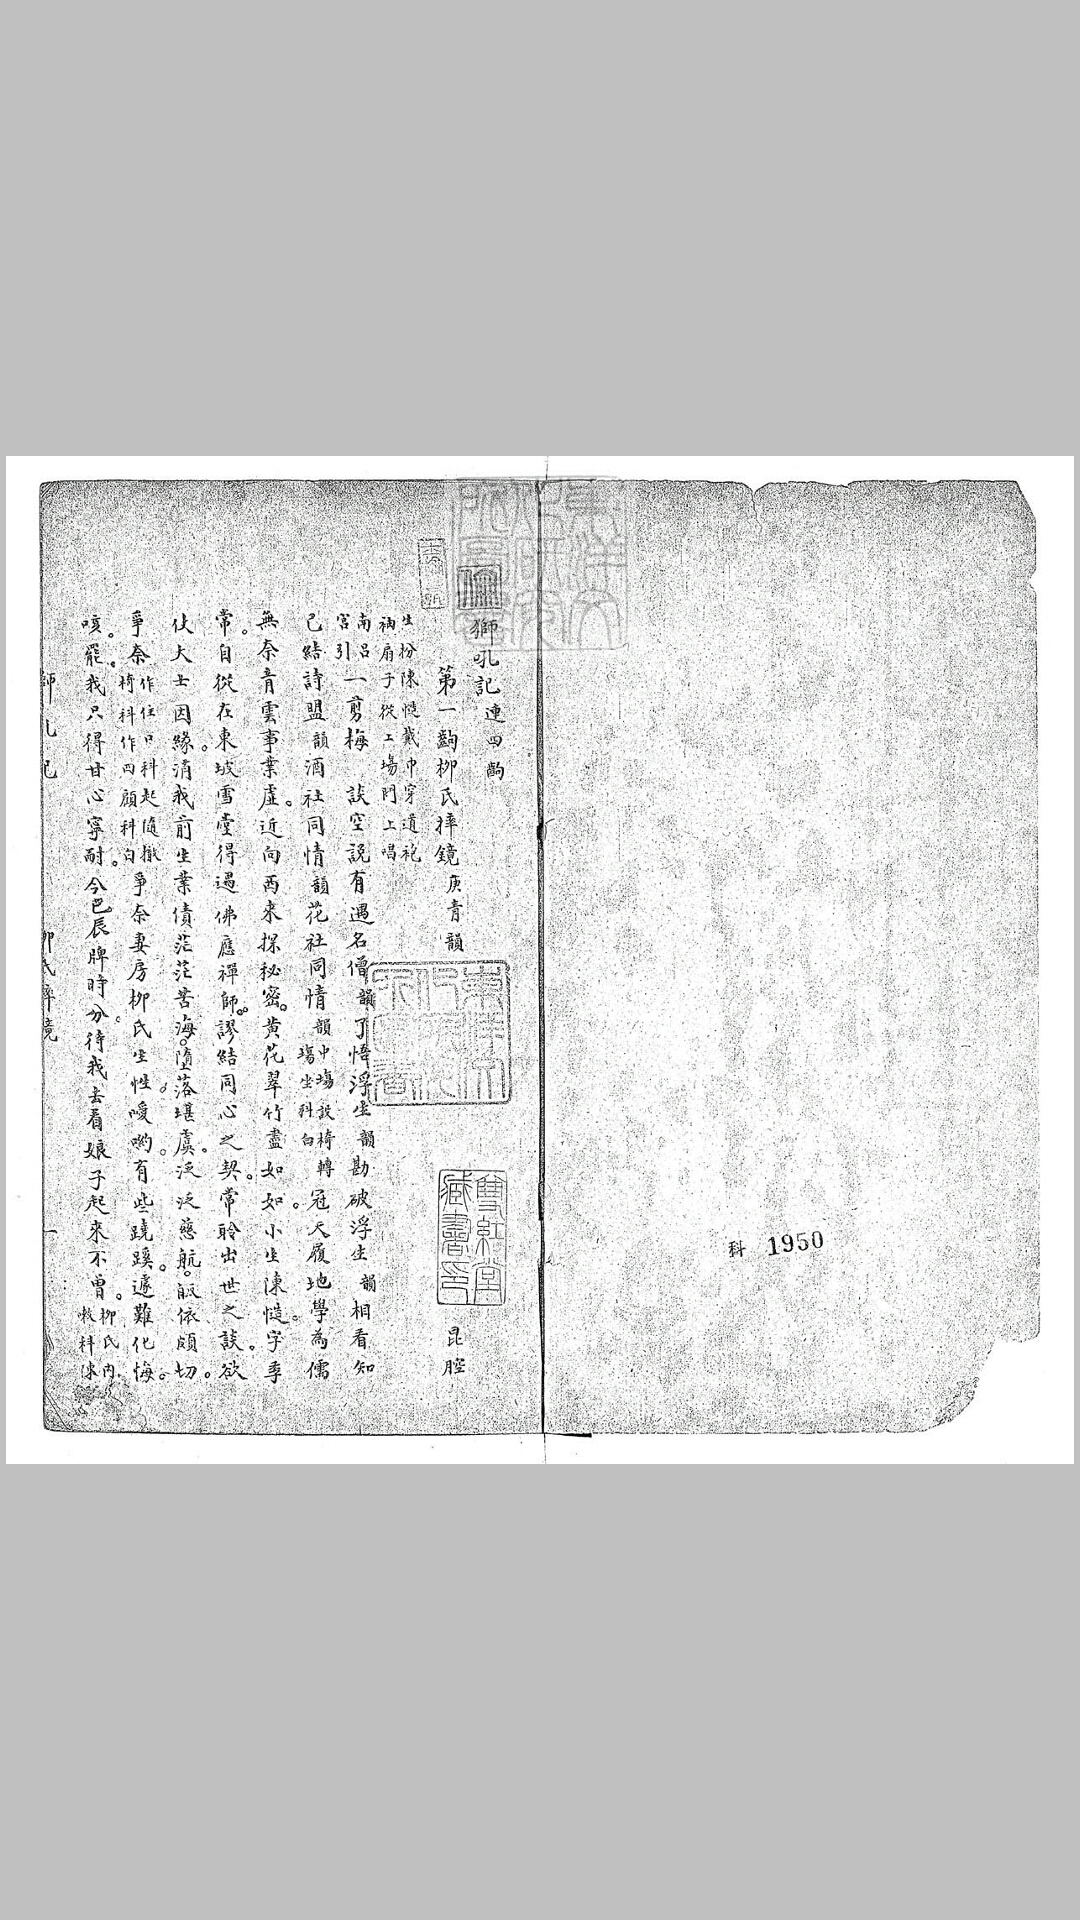 科 1950
獅吼記 連四齣
第一齣 柳氏摔鏡 庚青韻
昆腔
生扮陳慥戴巾穿道袍
衲扇子從上場門上唱
南呂
宮引
一剪梅 談空說有遇名僧韻了悟浮生韻勘破浮生韻相看知
己結詩盟韻酒社同情韻花社同情韻中場設椅轉
場坐科白
冠天履地學為儒
無奈青雲事業虛。近向西來探秘密。黃花翠竹盡如如。小生陳慥。字季
常。自從在東坡雪堂得遇佛應禪師。謬結同心之契。常聆出世之談。欲
仗大士因緣。消我前生業債。茫茫苦海。墮落堪虞。泛泛慈航。皈依頗切。
爭奈作住口科起隨撤
椅科作四顧科白
爭奈妻房柳氏生性。噯喲。有些蹺蹊。遽難化悔。
咳。罷。我只得甘心寧耐。今巳辰牌時分。待我去看娘子起來不曾。柳氏內
嗽科陳
獅吼記
柳氏摔鏡
一
雙紅堂
藏書印